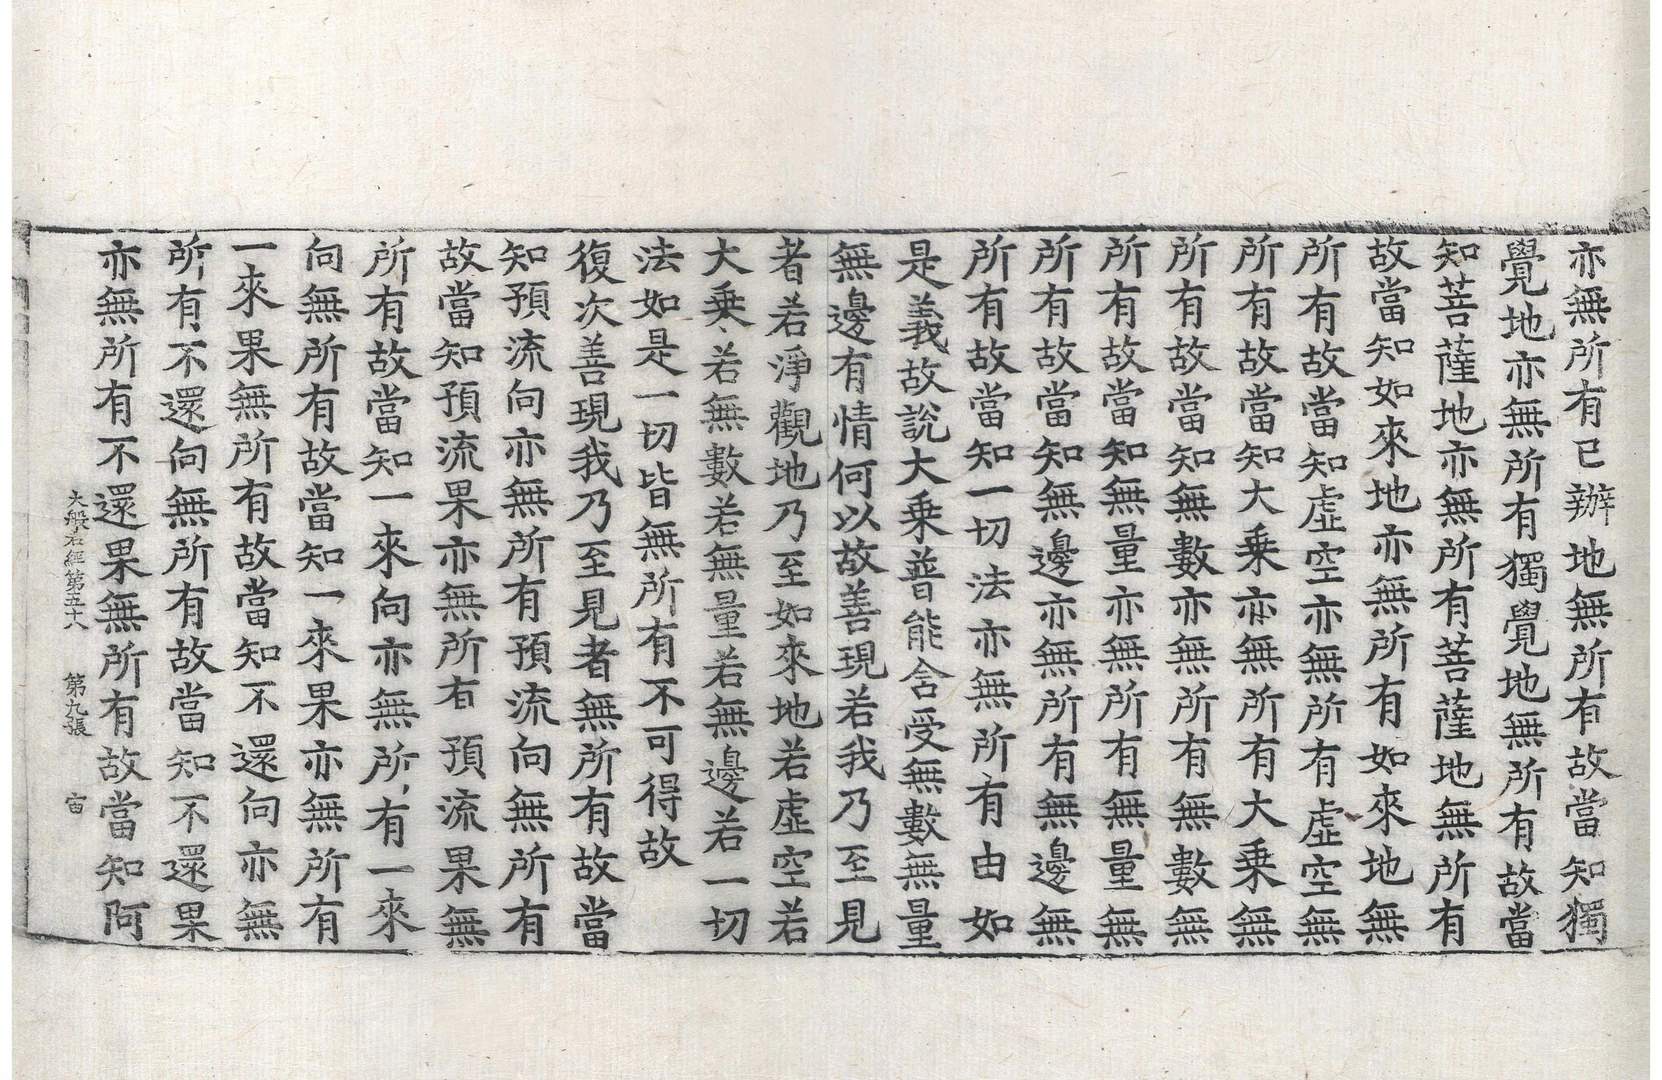 亦無所有已辦地無所有故當知獨
覺地亦無所有獨覺地無所有故當
知菩薩地亦無所有菩薩地無所有
故當知如來地亦無所有如來地無
所有故當知虛空亦無所有虛空無
所有故當知大乗亦無所有大乗無
所有故當知無數亦無所有無數無
所有故當知無量亦無所有無量無
所有故當知無邊亦無所有無邊無
所有故當知一切法亦無所有由如
是義故說大乗普能含受無數無量
無邊有情何以故善現若我乃至見
者若淨觀地乃至如來地若虛空若
大乗若無數若無量若無邊若一切
法如是一切皆無所有不可得故
復次善現我乃至見者無所有故當
知預流向亦無所有預流向無所有
故當知預流果亦無所有預流果無
所有故當知一來向亦無所有一來
向無所有故當知一來果亦無所有
一來果無所有故當知不還向亦無
所有不還向無所有故當知不還果
亦無所有不還果無所有故當知阿
大般若經第五十八 第九張 宙